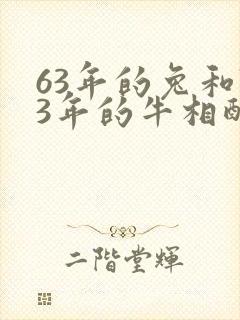 63年的兔和
3年的牛相配
二階堂輝